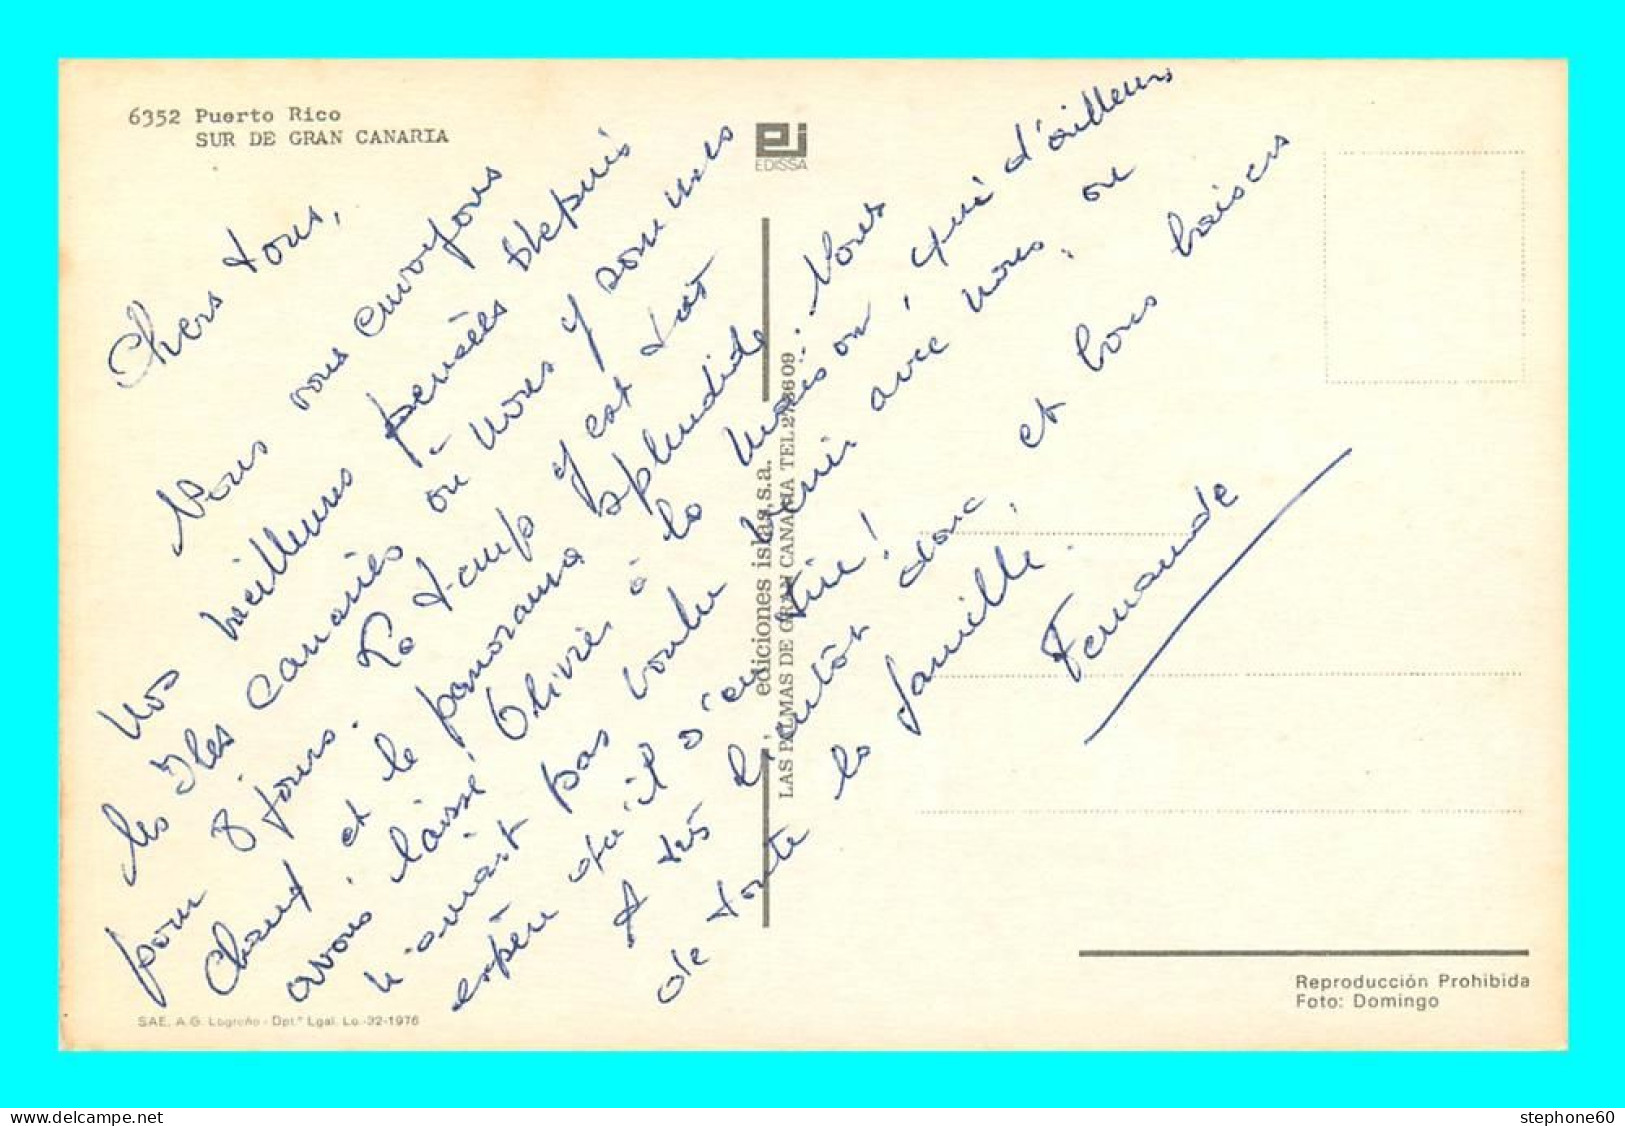 6352 Puerto Rico
SUR DE GRAN CANARIA
EDISSA
Chers tous,
Nous vous envoyons
nos meilleures pensées depuis
les Iles Canaries où nous y sommes
pour 8 jours. Le temps y est très
chaud et le panorama splendide. Nous
avons laissé Olivier à la maison, qui d'ailleurs
n'aurait pas voulu venir avec nous, on
espère qu'il s'en tire !
A très bientôt donc, et bons baisers
de toute la famille.
Fernande
ediciones islas, s.a.
LAS PALMAS DE GRAN CANARIA TEL 273609
Reproducción Prohibida
Foto: Domingo
SAE. A.G. Logroño - Dpt.º Lgal. Lo.-32-1976
delcampe.net
stephone60